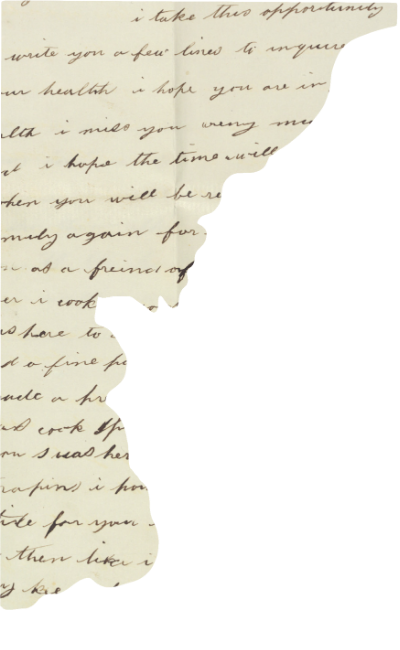 i take this opportunity
write you a few lines to inquire
ur health i hope you are in
lth i miss you very mu
i hope the time will
hen you will be re
mily again for
as a freind of
er i cook
s here to
d a fine p
ade a pr
as cook
ou s was her
rapins i ho
for your
then like i